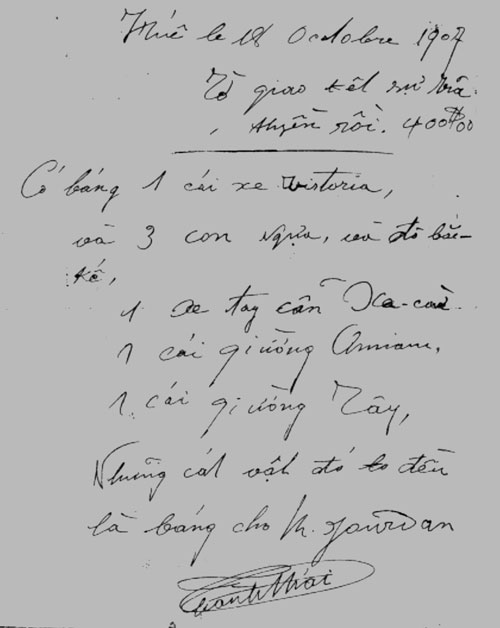 Huế le 18 Octobre 1907
Tờ giao kết sự trả
thuyền rồi. 400$00
Có báng 1 cái xe Victoria,
và 3 con ngựa, và đồ bắt-
kế,
1 xe tay cẩn Xa-cừ.
1 cái giường Annam,
1 cái giường Tây,
Những cát vật đó to đền
là báng cho M. Jourdan
Thành Thái